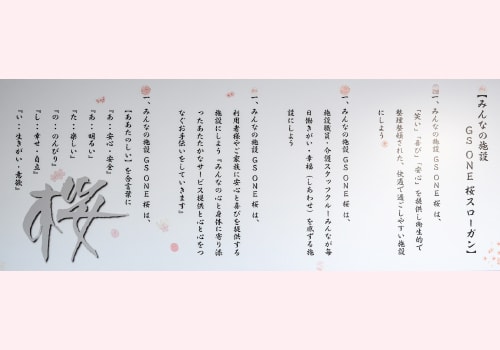 【みんなの施設
GS ONE 桜スローガン】
一、みんなの施設 GS ONE 桜 は、
「笑い」「喜び」「安心」を提供し衛生的で
整理整頓された、快適で過ごしやすい施設
にしよう
一、みんなの施設 GS ONE 桜 は、
施設職員・介護スタッフクルーみんなが毎
日働きがい・幸福（しあわせ）を感ずる施
設にしよう
一、みんなの施設 GS ONE 桜 は、
利用者様やご家族に安心と喜びを提供する
施設にしよう『みんなの心と身体に寄り添
ったあたたかなサービス提供と心と心をつ
なぐお手伝いをしていきます』
一、みんなの施設 GS ONE 桜 は、
【ああたのしい】を合言葉に
『あ：安心・安全』
『あ：明るい』
『た：楽しい』
『の：のんびり』
『し：幸せ・自立』
『い：生きがい・意欲』
桜